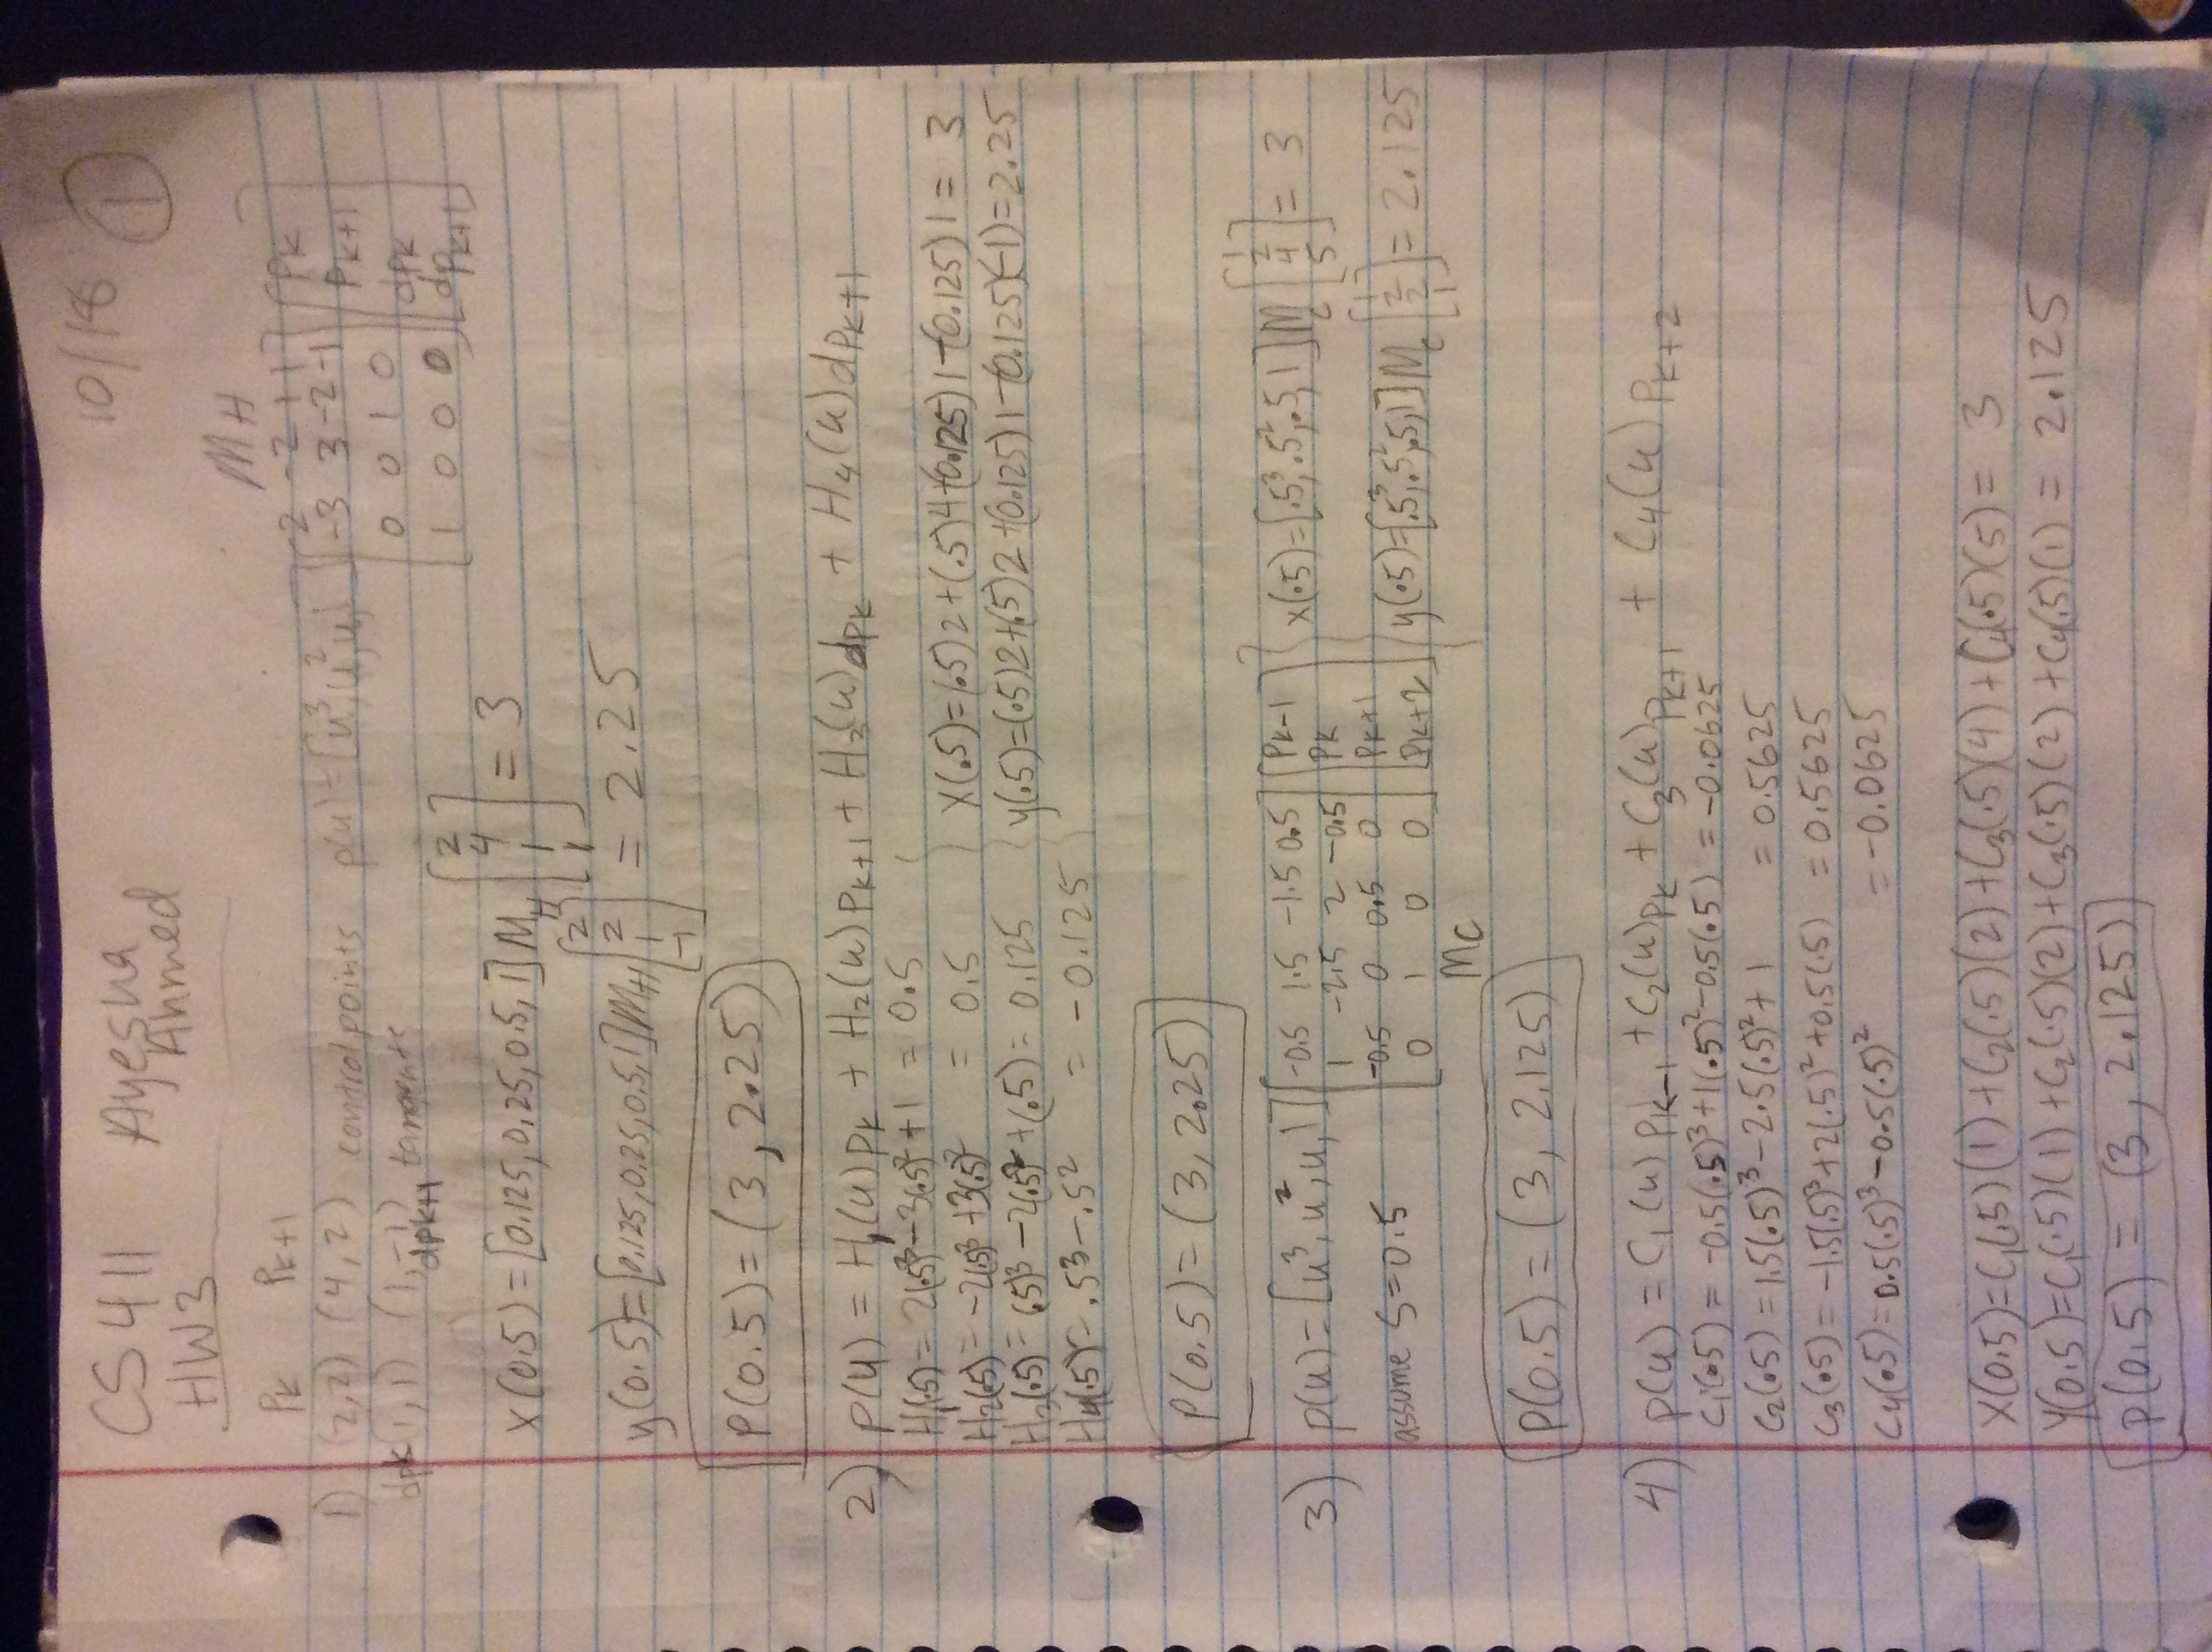 CS 411 Ayesha Ahmed 10/18 ①
HW3
Pk Pk+1 MH
1) (2,2) (4,2) control points p(u) = [u³, u², u, 1] [2 -2 1 1] [Pk]
[-3 3 -2 -1] [Pk+1]
dpk (1,1) (1,-1) dpk+1 tangents [0 0 1 0] [dpk]
[1 0 0 0] [dpk+1]
x(0.5) = [0.125, 0.25, 0.5, 1] MH [2 4 1 1] = 3
y(0.5) = [0.125, 0.25, 0.5, 1] MH [2 2 1 -1] = 2.25
P(0.5) = (3, 2.25)
2) P(u) = H1(u)Pk + H2(u)Pk+1 + H3(u)dPk + H4(u)dPk+1
H1(.5) = 2(.5)³ - 3(.5)² + 1 = 0.5
H2(.5) = -2(.5)³ + 3(.5)² = 0.5 x(.5) = (.5)2 + (.5)4 + (0.125)1 - (0.125)1 = 3
H3(.5) = (.5)³ - 2(.5)² + (.5) = 0.125 y(.5) = (.5)2 + (.5)2 + (0.125)1 - (0.125)(-1) = 2.25
H4(.5) = .5³ - .5² = -0.125
P(0.5) = (3, 2.25)
3) P(u) = [u³, u², u, 1] [-0.5 1.5 -1.5 0.5] [Pk-1] x(.5) = [.5³, .5², .5, 1] Mc [1 2 4 5] = 3
[1 -2.5 2 -0.5] [Pk]
assume s=0.5 [-0.5 0 0.5 0] [Pk+1]
[0 1 0 0] [Pk+2] y(.5) = [.5³, .5², .5, 1] Mc [1 2 2 1] = 2.125
Mc
P(0.5) = (3, 2.125)
4) P(u) = C1(u)Pk-1 + C2(u)Pk + C3(u)Pk+1 + C4(u)Pk+2
C1(.5) = -0.5(.5)³ + 1(.5)² - 0.5(.5) = -0.0625
C2(.5) = 1.5(.5)³ - 2.5(.5)² + 1 = 0.5625
C3(.5) = -1.5(.5)³ + 2(.5)² + 0.5(.5) = 0.5625
C4(.5) = 0.5(.5)³ - 0.5(.5)² = -0.0625
X(0.5) = C1(.5)(1) + C2(.5)(2) + C3(.5)(4) + C4(.5)(5) = 3
Y(0.5) = C1(.5)(1) + C2(.5)(2) + C3(.5)(2) + C4(.5)(1) = 2.125
P(0.5) = (3, 2.125)